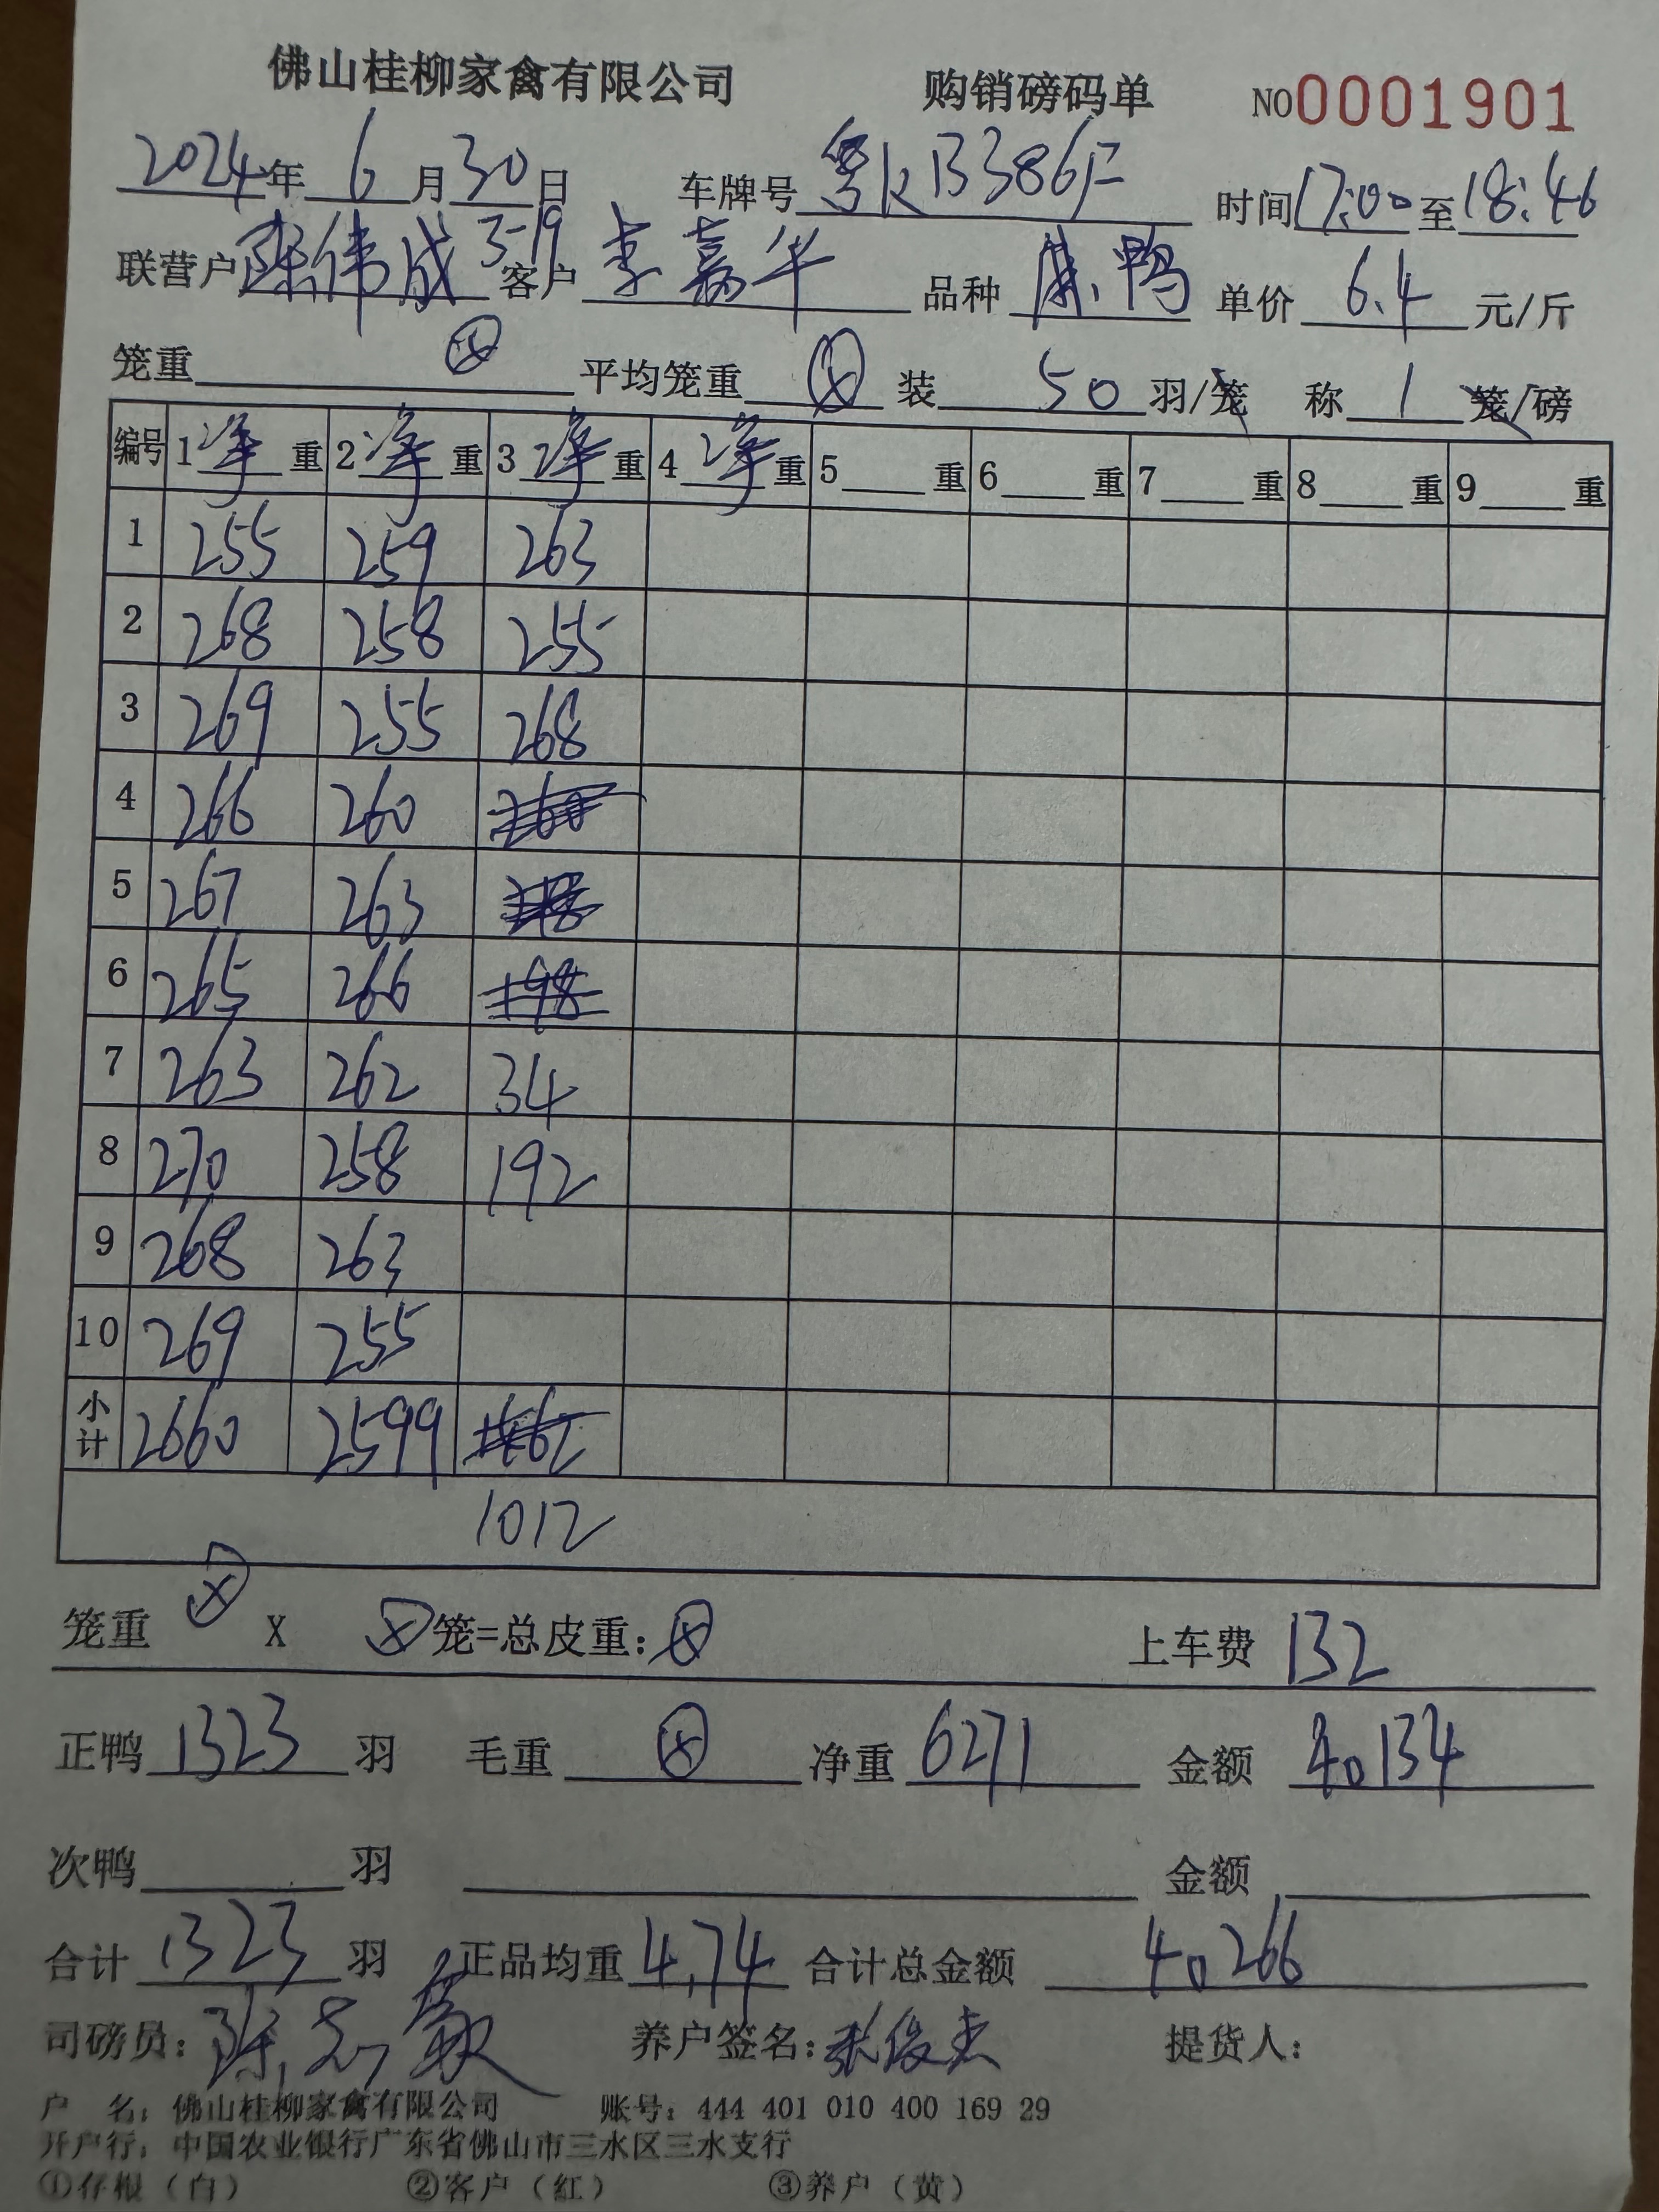 佛山桂柳家禽有限公司 购销磅码单 NO0001901
2024年6月30日 车牌号 粤KB386F 时间17:00至18:46
联营户 陈伟成 3-19 客户 李嘉华 品种 麻鸭 单价 6.4 元/斤
笼重 ⊗ 平均笼重 ⊗ 装 50 羽/笼 称 1 笼/磅
编号 1 净 重 2 净 重 3 净 重 4 净 重 5 重 6 重 7 重 8 重 9 重
1 255 259 263
2 268 258 255
3 269 255 268
4 266 260
5 267 263
6 265 266
7 263 262 34
8 270 258 192
9 268 263
10 269 255
小计 2660 2599
1012
笼重 ⊗ X ⊗ 笼=总皮重: ⊗ 上车费 132
正鸭 1323 羽 毛重 ⊗ 净重 6271 金额 40134
次鸭 羽 金额
合计 1323 羽 正品均重 4.74 合计总金额 40266
司磅员: 陈志敏 养户签名: 张俊杰 提货人:
户 名: 佛山桂柳家禽有限公司 账号: 444 401 010 400 169 29
开户行: 中国农业银行广东省佛山市三水区三水支行
①存根(白) ②客户(红) ③养户(黄)